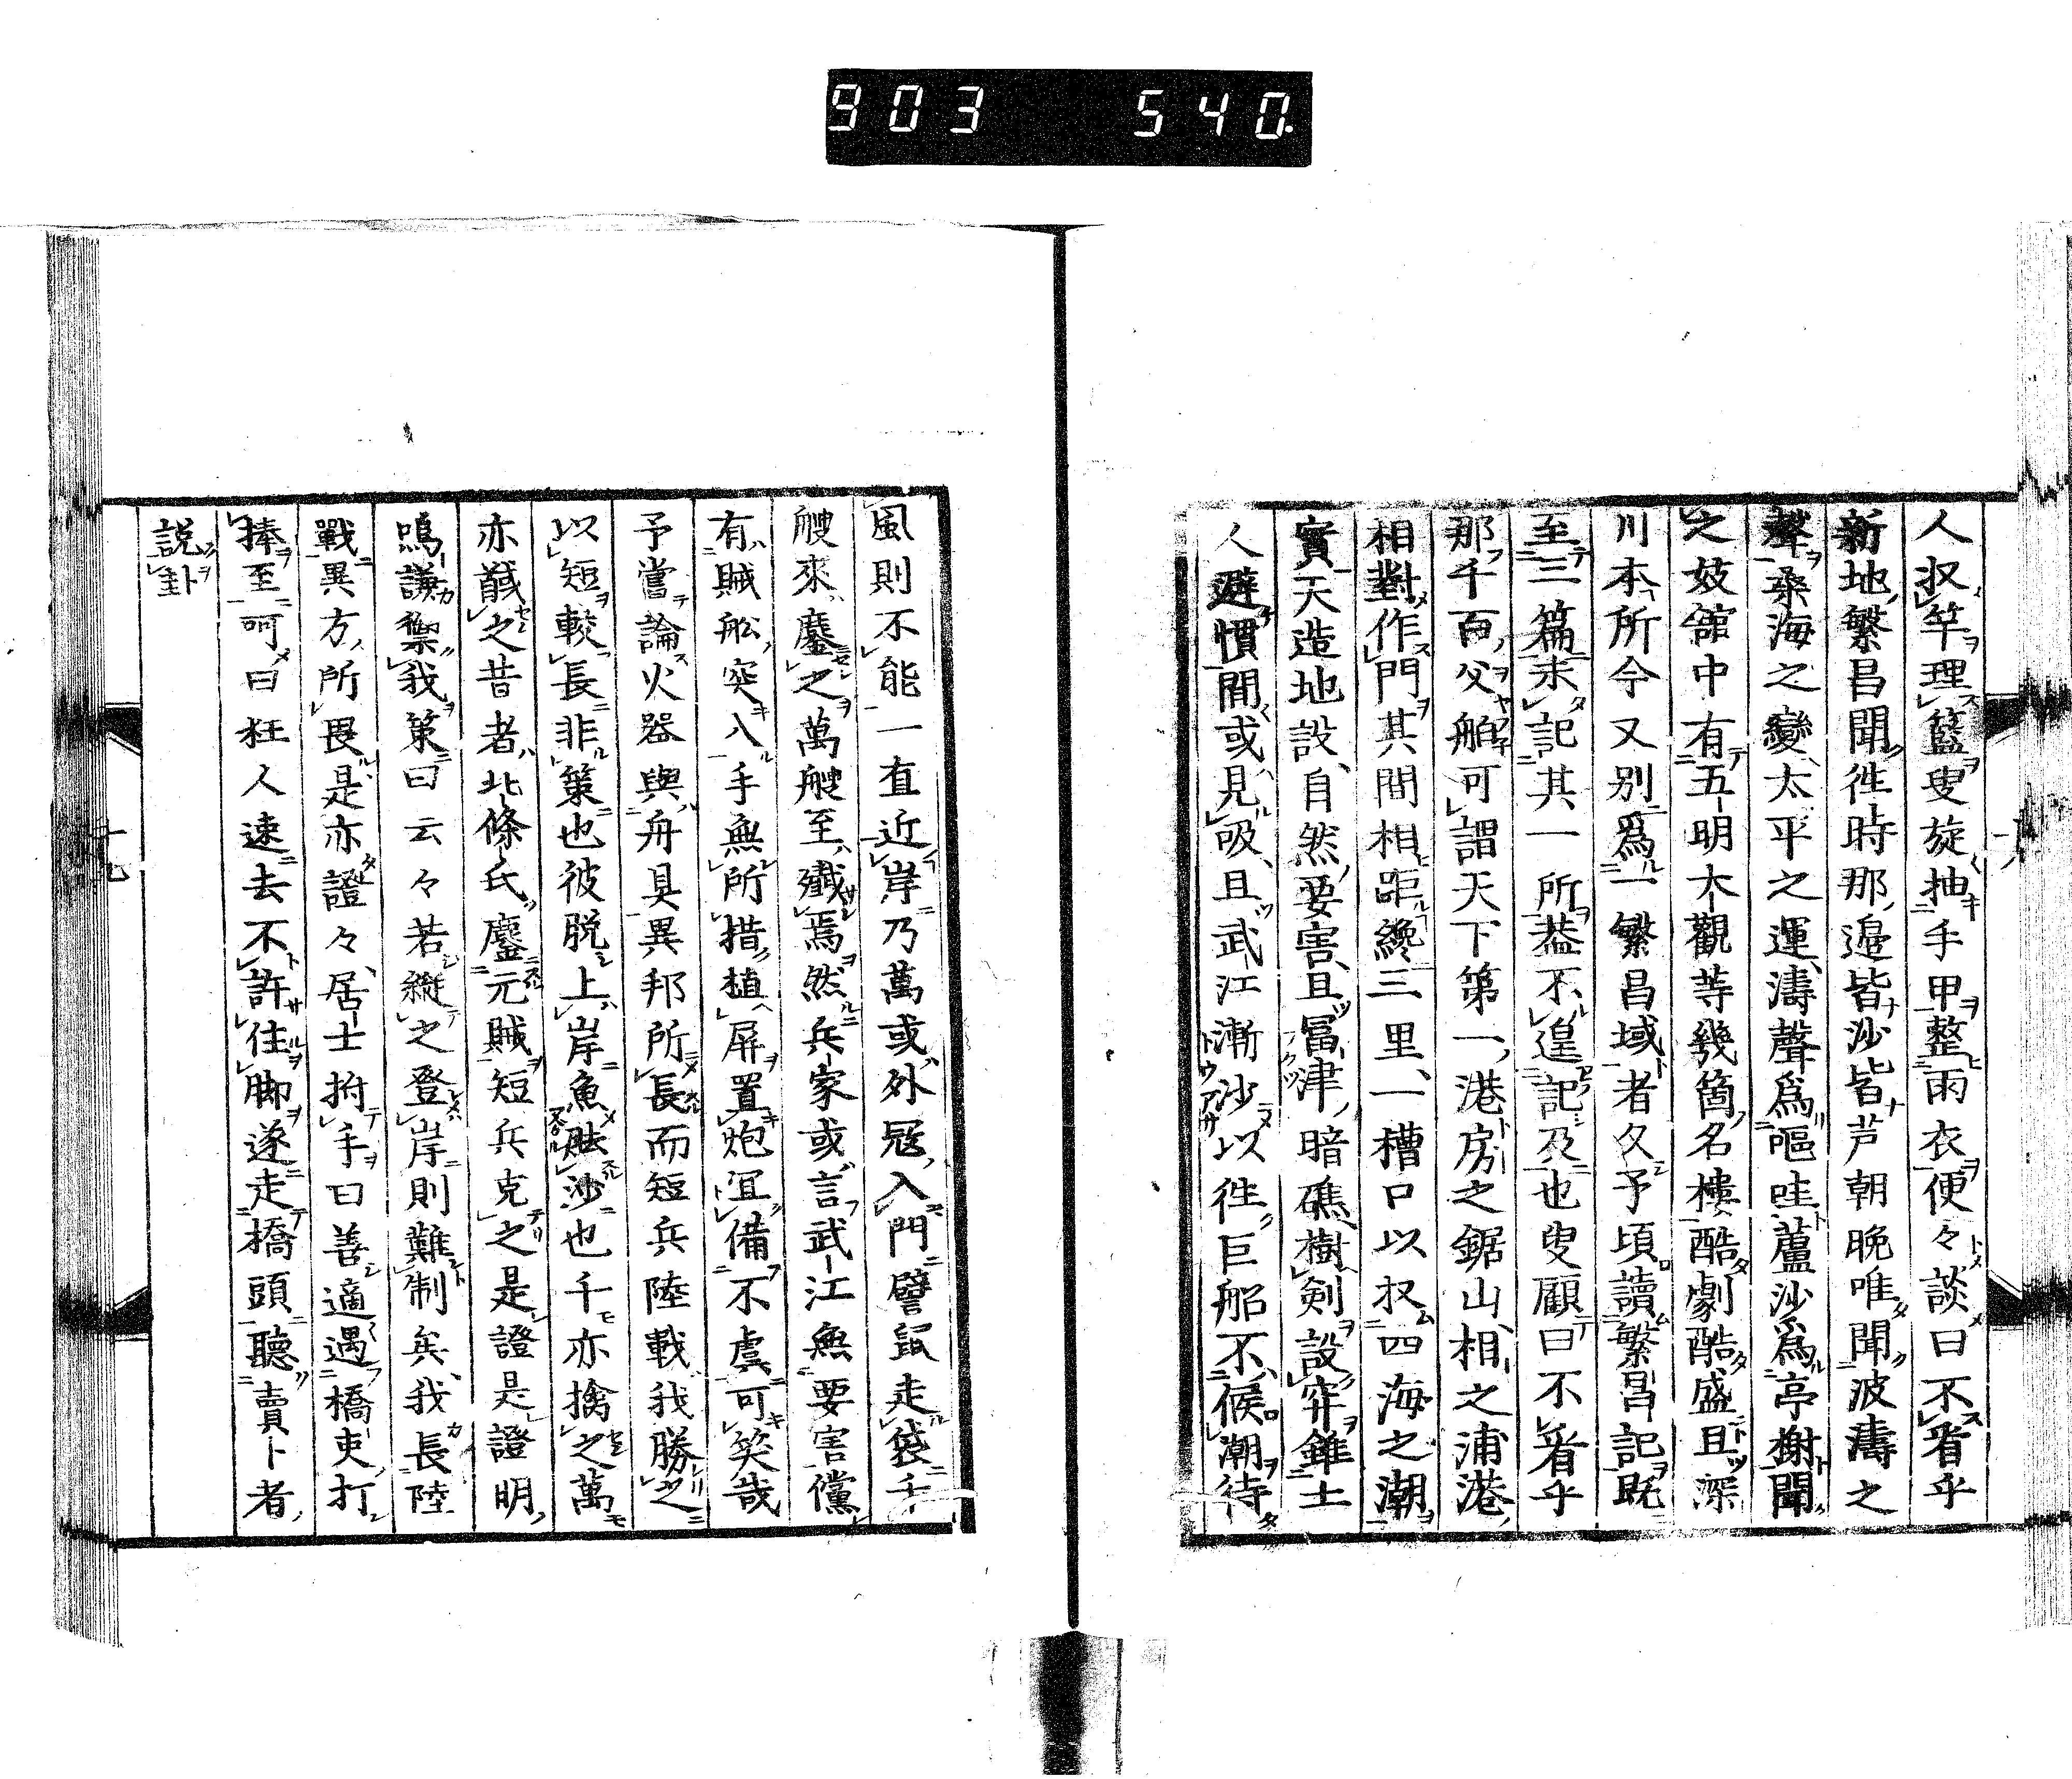 903 540.
人収竿理籃叟旋抽手甲整雨衣便々談曰不看乎
新地繁昌聞徃時那邉皆沙皆芦朝晩唯聞波濤之
聲桑海之變太平之運濤聲爲嘔哇蘆沙爲亭榭聞
之妓舘中有五明大觀等幾箇名樓酷劇酷盛且深
川本所今又别爲一繁昌域者久予頃讀繁昌記既
至三篇未記其一所葢不遑記及也叟顧曰不看乎
那千百父舶可謂天下第一港房之鋸山相之浦港
相對作門其間相距纔三里一槽口以収四海之潮
實天造地設自然要害且冨津暗礁樹剣設穽錐土
人避慣間或見吸且武江漸沙以徃巨船不候潮待
風則不能一直近岸乃萬或外冦入門譬鼠走袋千
艘來鏖之萬艘至殲焉然兵家或言武江無要害儻
有賊舩突入手無所措植屏置炮冝備不虞可笑哉
予嘗論火器與舟具異邦所長而短兵陸載我勝之
以短較長非策也彼脱上岸魚胠沙也千亦擒之萬
亦馘之昔者北條氏鏖元賊短兵克之是證是證明
鳴謙禦我策曰云々若縦之登岸則難制矣我長陸
戰異方所畏是亦證々居士拊手曰善適遇橋吏打
捧至呵曰狂人速去不許住脚遂走橋頭聽賣卜者
説卦
十九